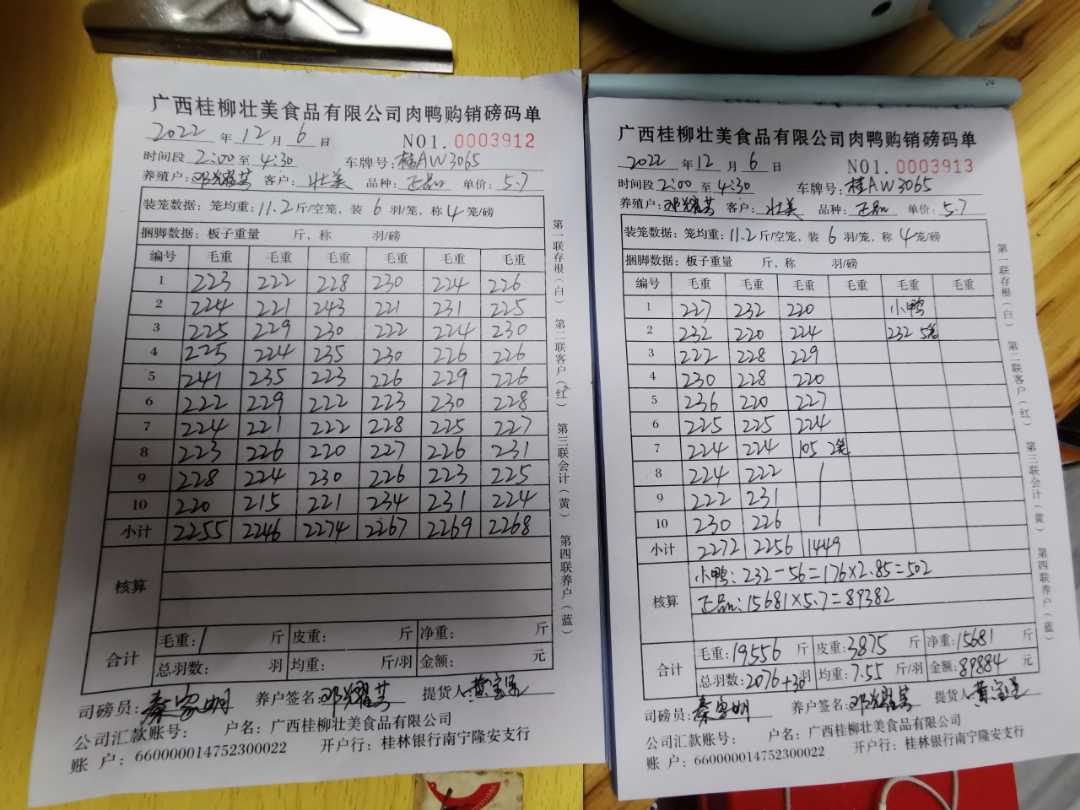 广西桂柳壮美食品有限公司肉鸭购销磅码单
2022 年 12 月 6 日 NO1. 0003912
时间段 2:00 至 4:30 车牌号: 桂AW3065
养殖户: 邓耀芬 客户: 壮美 品种: 正品 单价: 5.7
装笼数据: 笼均重: 11.2 斤/空笼, 装 6 羽/笼, 称 4 笼/磅
捆脚数据: 板子重量 斤, 称 羽/磅
编号 毛重 毛重 毛重 毛重 毛重 毛重
1 223 222 228 230 224 226
2 224 221 243 221 231 225
3 225 229 230 222 224 230
4 225 224 235 230 226 226
5 241 235 223 226 229 226
6 222 229 222 223 230 228
7 224 221 222 228 225 227
8 223 226 220 227 226 231
9 228 224 230 226 223 225
10 220 215 221 234 231 224
小计 2255 2246 2274 2267 2269 2268
核算
合计 毛重: 斤 皮重: 斤 净重: 斤
总羽数: 羽 均重: 斤/羽 金额: 元
司磅员: 秦家明 养户签名: 邓耀芬 提货人: 黄宝
公司汇款账号: 户名: 广西桂柳壮美食品有限公司
账 户: 660000014752300022 开户行: 桂林银行南宁隆安支行
第一联存根(白) 第二联客户(红) 第三联会计(黄) 第四联养户(蓝)
广西桂柳壮美食品有限公司肉鸭购销磅码单
2022 年 12 月 6 日 NO1. 0003913
时间段 2:00 至 4:30 车牌号: 桂AW3065
养殖户: 邓耀芬 客户: 壮美 品种: 正品 单价: 5.7
装笼数据: 笼均重: 11.2 斤/空笼, 装 6 羽/笼, 称 4 笼/磅
捆脚数据: 板子重量 斤, 称 羽/磅
编号 毛重 毛重 毛重 毛重 毛重 毛重
1 227 232 220 小鸭
2 232 220 224 232 5笼
3 222 228 229
4 230 228 220
5 236 220 227
6 225 225 224
7 224 224 105 2笼
8 224 222
9 222 231
10 230 226
小计 2272 2256 1449
核算 小鸭: 232-56=176×2.85=502
正品: 15681×5.7=89382
合计 毛重: 19556 斤 皮重: 3875 斤 净重: 15681 斤
总羽数: 2076+30 羽 均重: 7.55 斤/羽 金额: 89884 元
司磅员: 秦家明 养户签名: 邓耀芬 提货人: 黄宝
公司汇款账号: 户名: 广西桂柳壮美食品有限公司
账 户: 660000014752300022 开户行: 桂林银行南宁隆安支行
第一联存根(白) 第二联客户(红) 第三联会计(黄) 第四联养户(蓝)